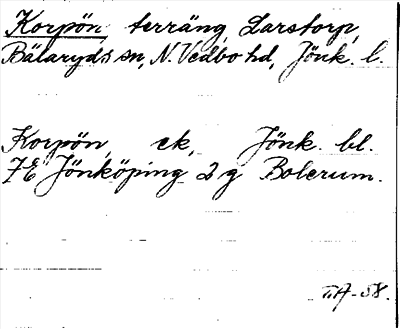 Korpön, terräng, Larstorp,
Bälaryds sn, N. Vedbo hd, Jönk. l.
Korpön, ek, Jönk. bl.
7E Jönköping 2 g Bolerum.
TA-58.